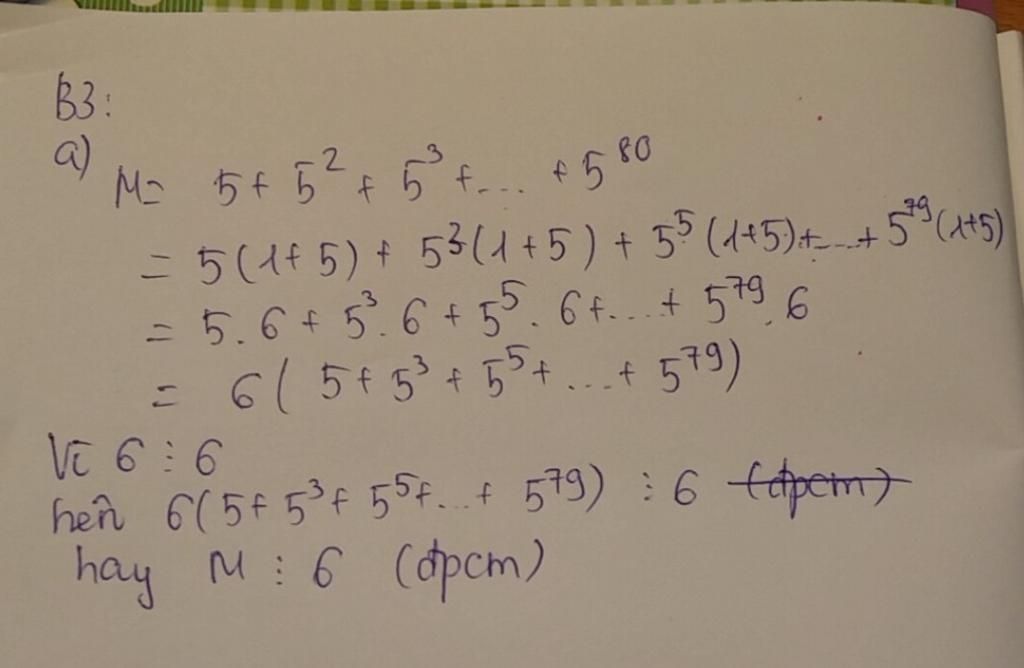 B3:
a)
M= 5 + 5² + 5³ + ... + 5⁸⁰
= 5(1+5) + 5³(1+5) + 5⁵(1+5)+...+ 5⁷⁹(1+5)
= 5.6 + 5³.6 + 5⁵.6+...+ 5⁷⁹.6
= 6( 5 + 5³ + 5⁵+ ...+ 5⁷⁹)
Vì 6 ⋮ 6
nên 6(5+ 5³+ 5⁵+...+ 5⁷⁹) ⋮ 6 (đpcm)
hay M ⋮ 6 (đpcm)